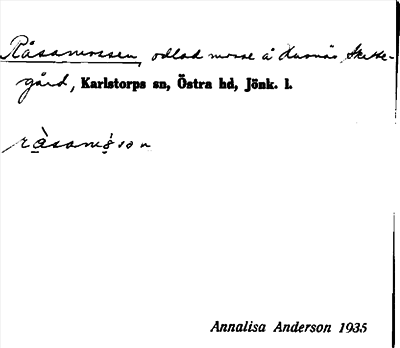 Råsamossen, odlad mosse å Kusnäs Skatte-
gård, Karlstorps sn, Östra hd, Jönk. l.
ràsams̀sən
Annalisa Anderson 1935